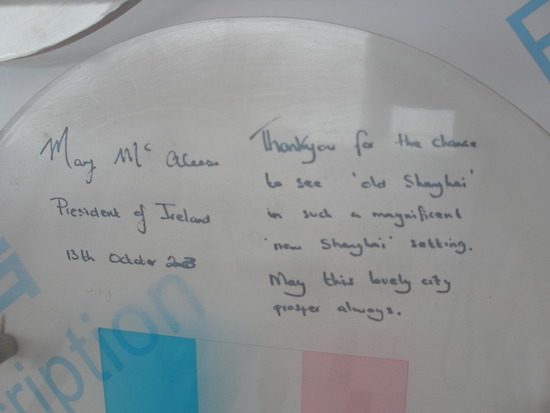 Mary Mc Aleese
President of Ireland
13th October 2003
Thankyou for the chance
to see 'old Shanghai'
in such a magnificent
'new Shanghai' setting.
May this lovely city
prosper always.
ription